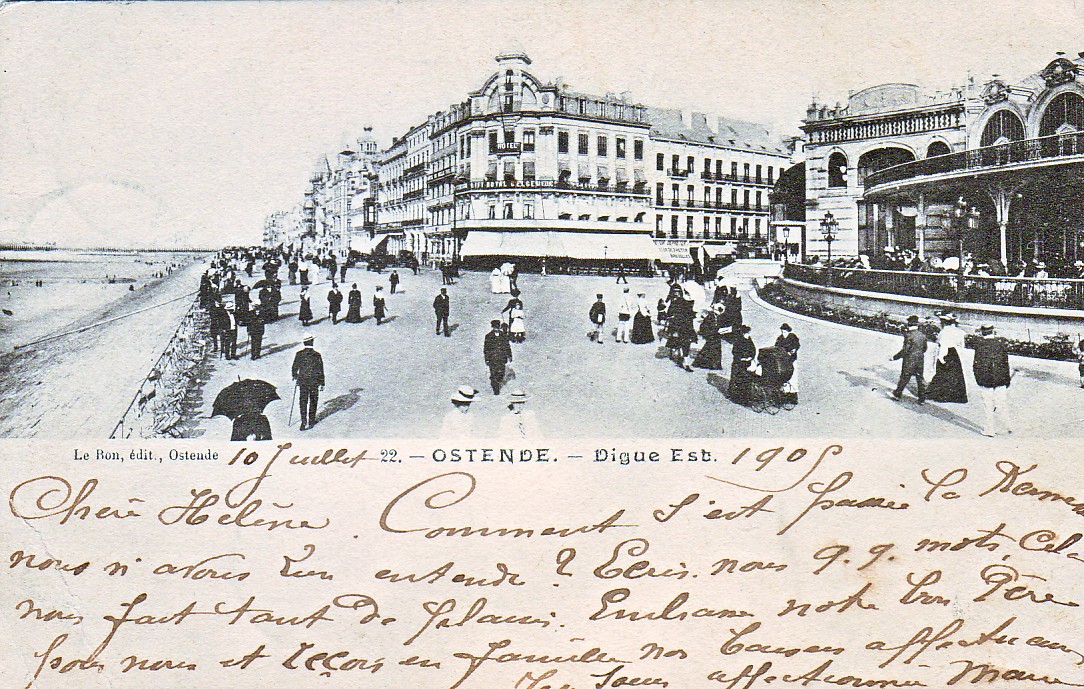 HOTEL
Le Bon, édit., Ostende 10 Juillet 22. — OSTENDE. — Digue Est. 1905
Chère Hélène. Comment s'est passée la
nous n'avons rien entendu? Ecris nous q.q. mots, Cela
nous fait tant de plaisir. Embrasse notre bon Père
pour nous et reçois en famille nos baisers affectueux
Soeur affectionnée